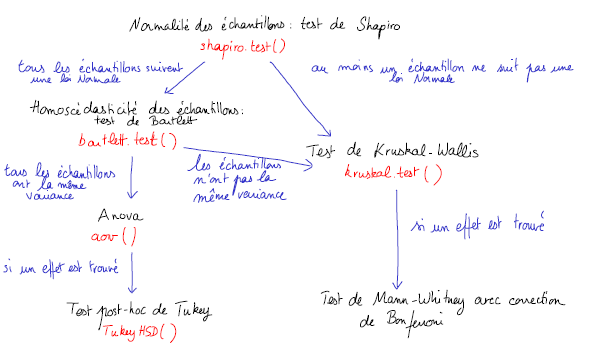 Normalité des échantillons : test de Shapiro
shapiro.test()
tous les échantillons suivent
une loi Normale
au moins un échantillon ne suit pas une
loi Normale
Homoscédasticité des échantillons:
test de Bartlett
bartlett.test()
tous les échantillons
ont la même
variance
les échantillons
n'ont pas la
même variance
Test de Kruskal-Wallis
kruskal.test()
Anova
aov()
si un effet est trouvé
si un effet est trouvé
Test post-hoc de Tukey
TukeyHSD()
Test de Mann-Whitney avec correction
de Bonferroni